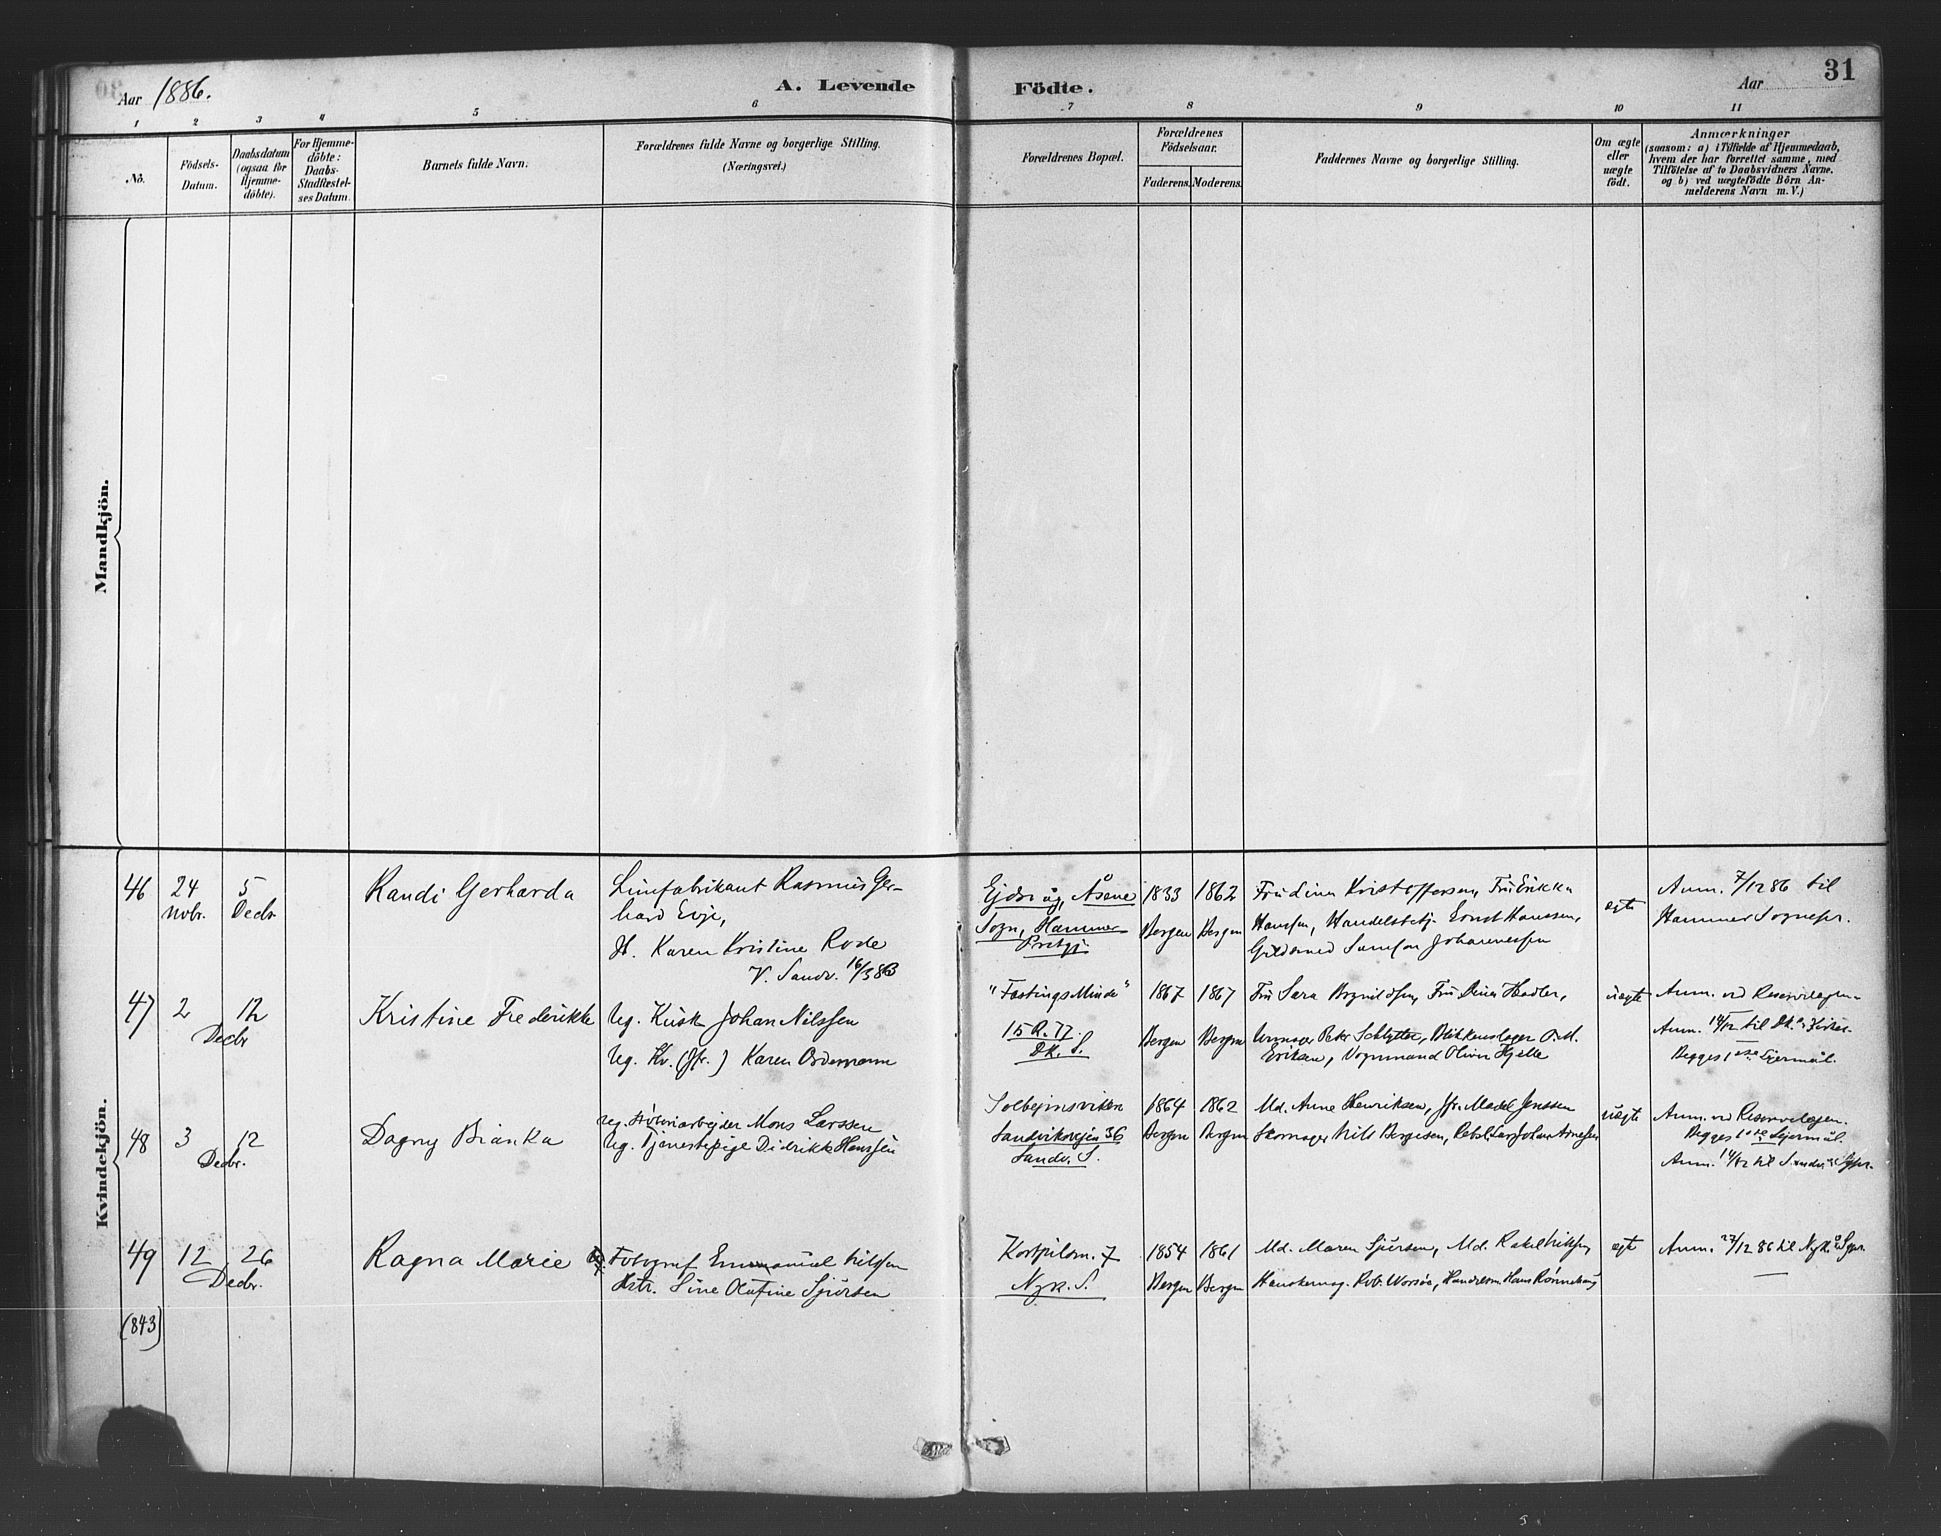 Aar 1886.
A. Levende Födte.
Aar
31
1 2 3 4 5 6 7 8 9 10 11
No.
Födsels-
Datum.
Daabsdatum
(ogsaa for
Hjemme-
döbte).
For Hjemme-
döbte:
Daabs-
Stadfæstel-
ses Datum.
Barnets fulde Navn.
Forældrenes fulde Navne og borgerlige Stilling.
(Næringsvei.)
Forældrenes Bopæl.
Forældrenes
Födselsaar.
Faderens. Moderens.
Faddernes Navne og borgerlige Stilling.
Om ægte
eller
uægte
födt.
Anmærkninger
(saasom: a) i Tilfælde af Hjemmedaab,
hvem der har forrettet samme, med
Tilföielse af to Daabsvidners Navne,
og b) ved uægtefödte Börn An-
melderens Navn m. V.)
Mandkjön.
Kvindekjön.
46
24
Novbr.
5
Decbr
Randi Gerharda
Limfabrikant Rasmus Ger-
hard Evje,
H. Karen Kristine Rode
V. Sandv. 16/3 83
Åsane
Sogn, Hammer
Prstgj
1833
Bergen
1862
Bergen
Fru Lina Kristoffersen, Fru Erikka
Hansen, Handelsbetj. Ernst Hanssen,
Johannessen
ægte
Anm. 7/12 86 til
Hammer Sognepr.
47
2
12
Decbr
Kristine Frederikke
Ug. Kusk Johan Nilssen
Ug. Kv. (Jfr.) Karen Ordemann
"Fæstings Minde"
15 R. 17.
Dk. S.
1867
Bergen
1867
Bergen
Fru Sara
Urmager Peter Schlytter, Blikkenslager O. M.
Eriksen, Vognmand Oliver Hjelle
uægte
Anm. ved Reservelægen.
Anm. 14/12 til Dk.
Begges 1ste Lejermål.
48
3
12
Decbr.
Dagny Bianka
Ug. Mons Larssen
Ug. Tjenestepige Didrikke Hanssen
Solhejmsviken
Sandviksvejen 36
Sandv. S.
1864
Bergen
1862
Bergen
Md. Anne Henriksen, Jfr. Madel Jenssen
Skomager Nils Bergesen, Johan Arnesen
uægte
Anm. ved Reservelægen.
Begges 1ste Lejermål.
Anm. 14/12 til Sandv. Sgpr.
49
12
26
Decbr.
Ragna Marie
Fotograf Emmanuel Nilssen
Hstr. Sine Olafine Sjursen
7
Nyk. S.
1854
Bergen
1861
Bergen
Md. Maren Sjursen, Md. Rakel
Hanskemag. Rob. Worsöe, Hans Rønnehaug
ægte
Anm. 27/12 86 til Nyk. Sgpr.
(843)